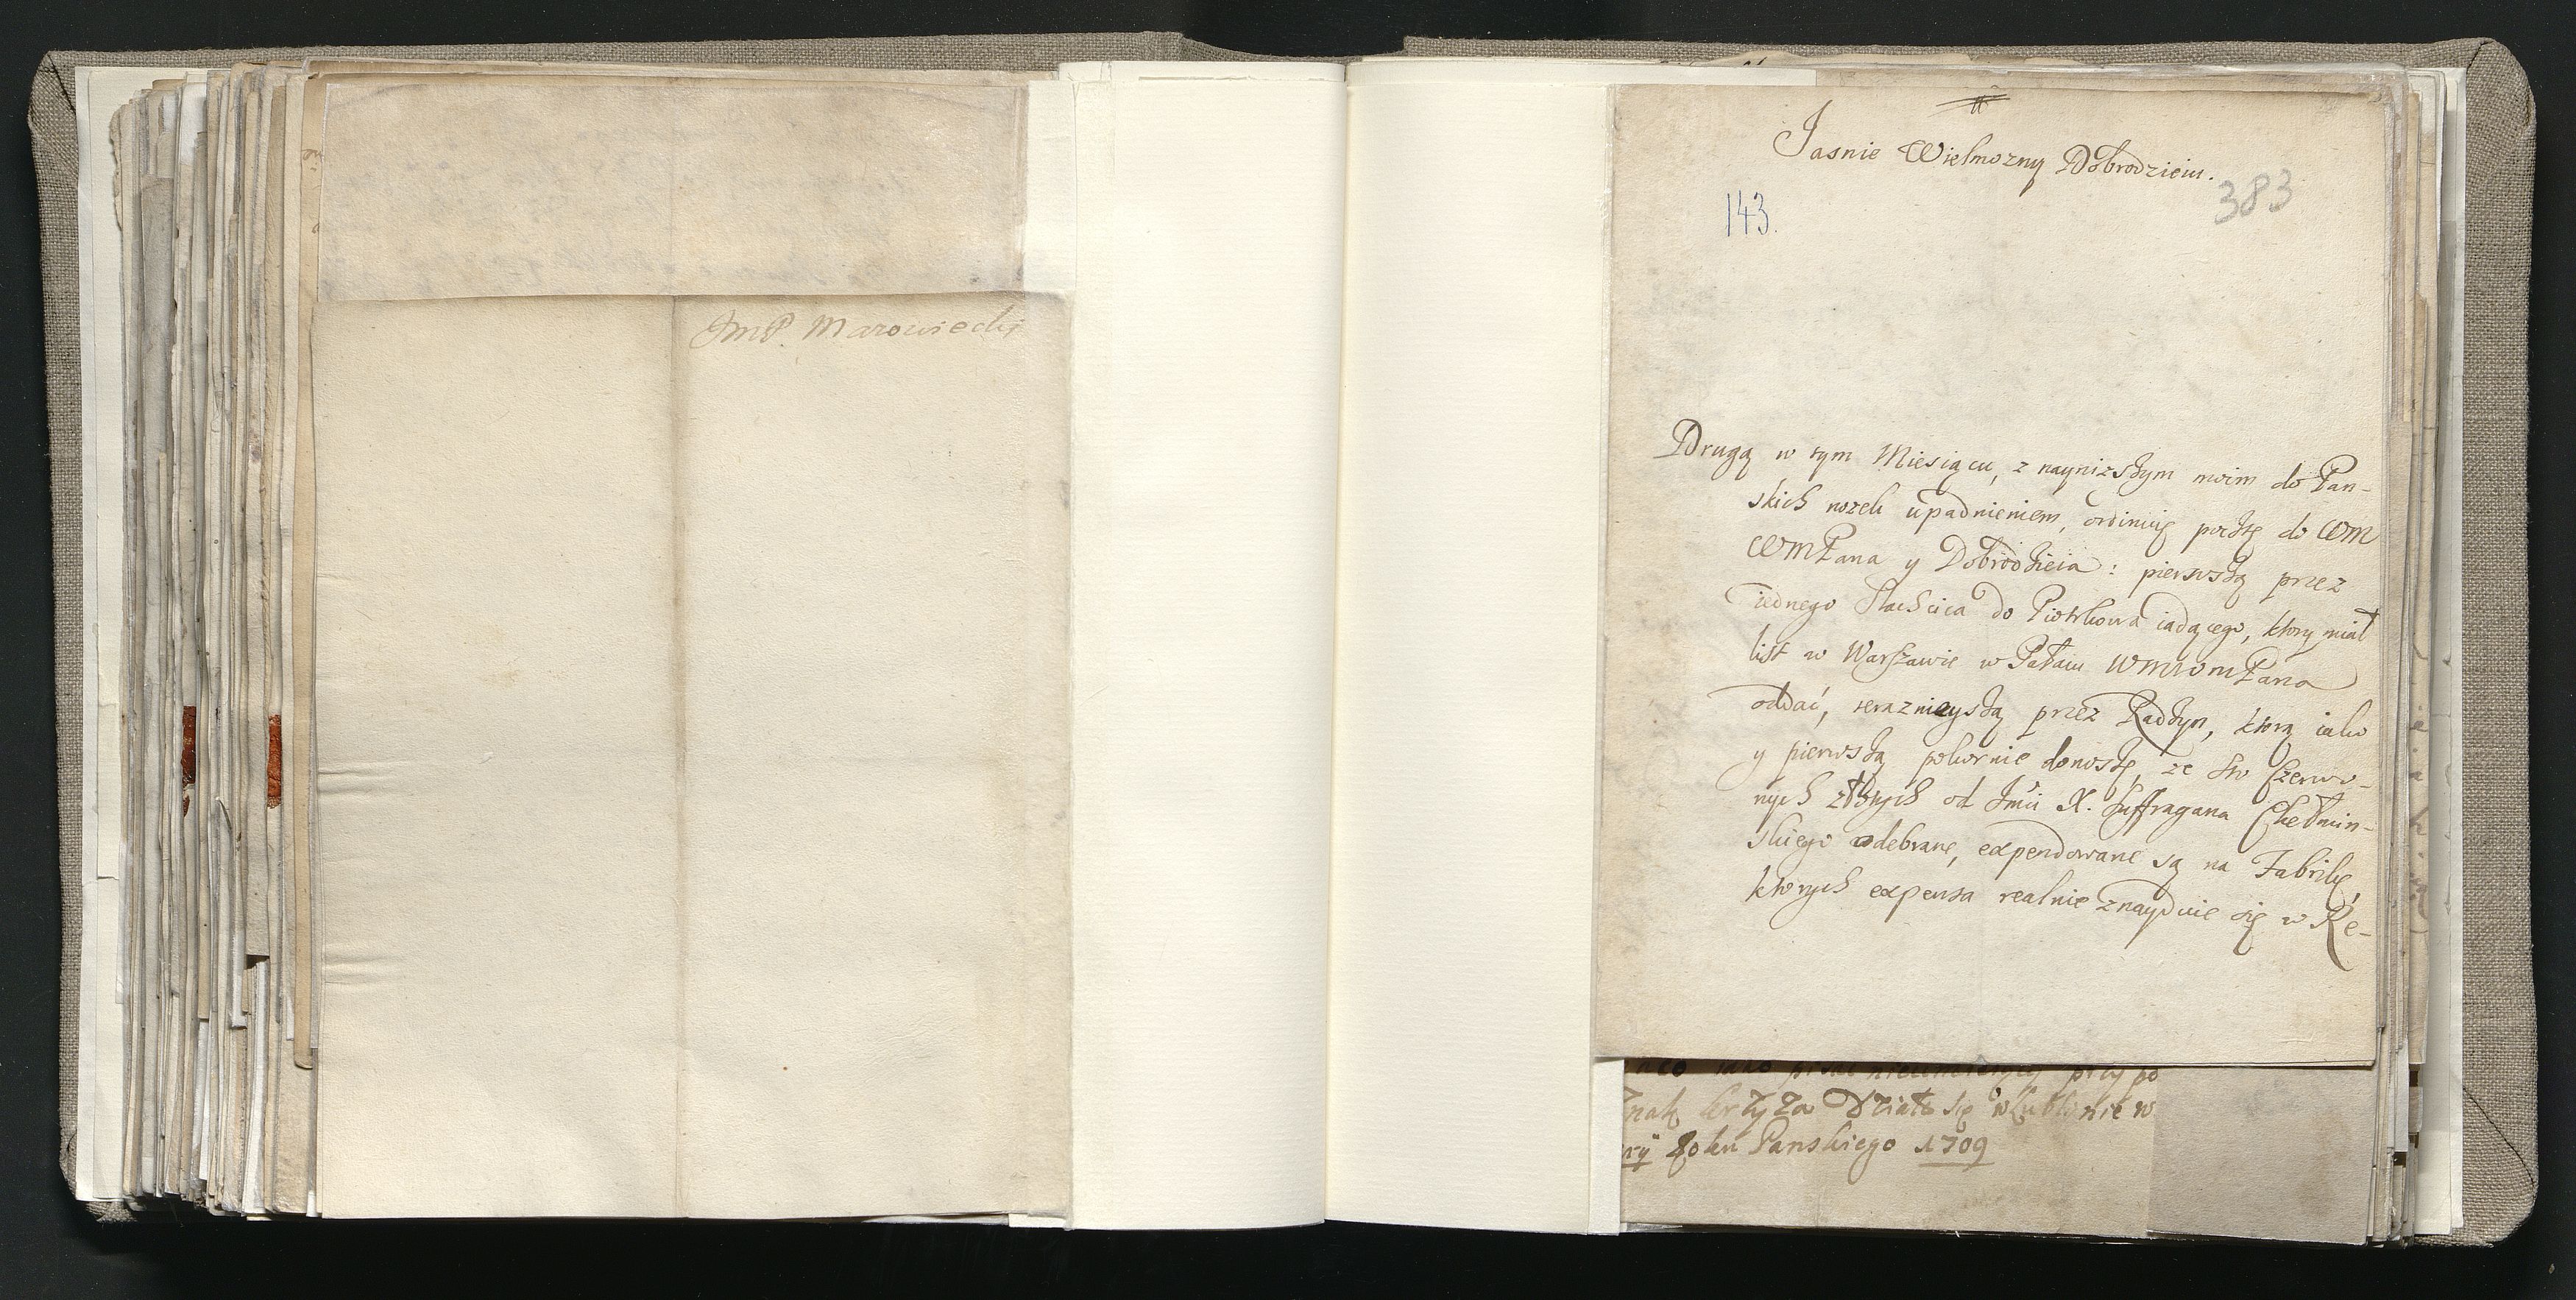 JmP. Mazowiecki
Jasnie Wielmozny Dobrodzieiu.
143.
383
Drugą w tym Miesiącu, z nayniższym moim do Pan-
skich nozek upadnieniem, ordinuię pocztę do WM
WMPana y Dobrodzieia: pierwszą przez
iednego Slachcica do Piotrkowa iadącego, ktory miał
list w Warszawie w Pałacu WMWMPana
oddać, teraznieyszą przez Radzyn, ktorą iako
y pierwszą pokornie donoszę, że sto Czerwo-
nych złotych od Jmći X. Suffragana Chełmin-
skiego odebrane, expendowane są na Fabrikę,
ktorych expensa realnie znayduie się w Re-
iako pisać nieumieiący przy po
Znak krzyża Działo się w Lublinie w
ry Roku Panskiego 1709